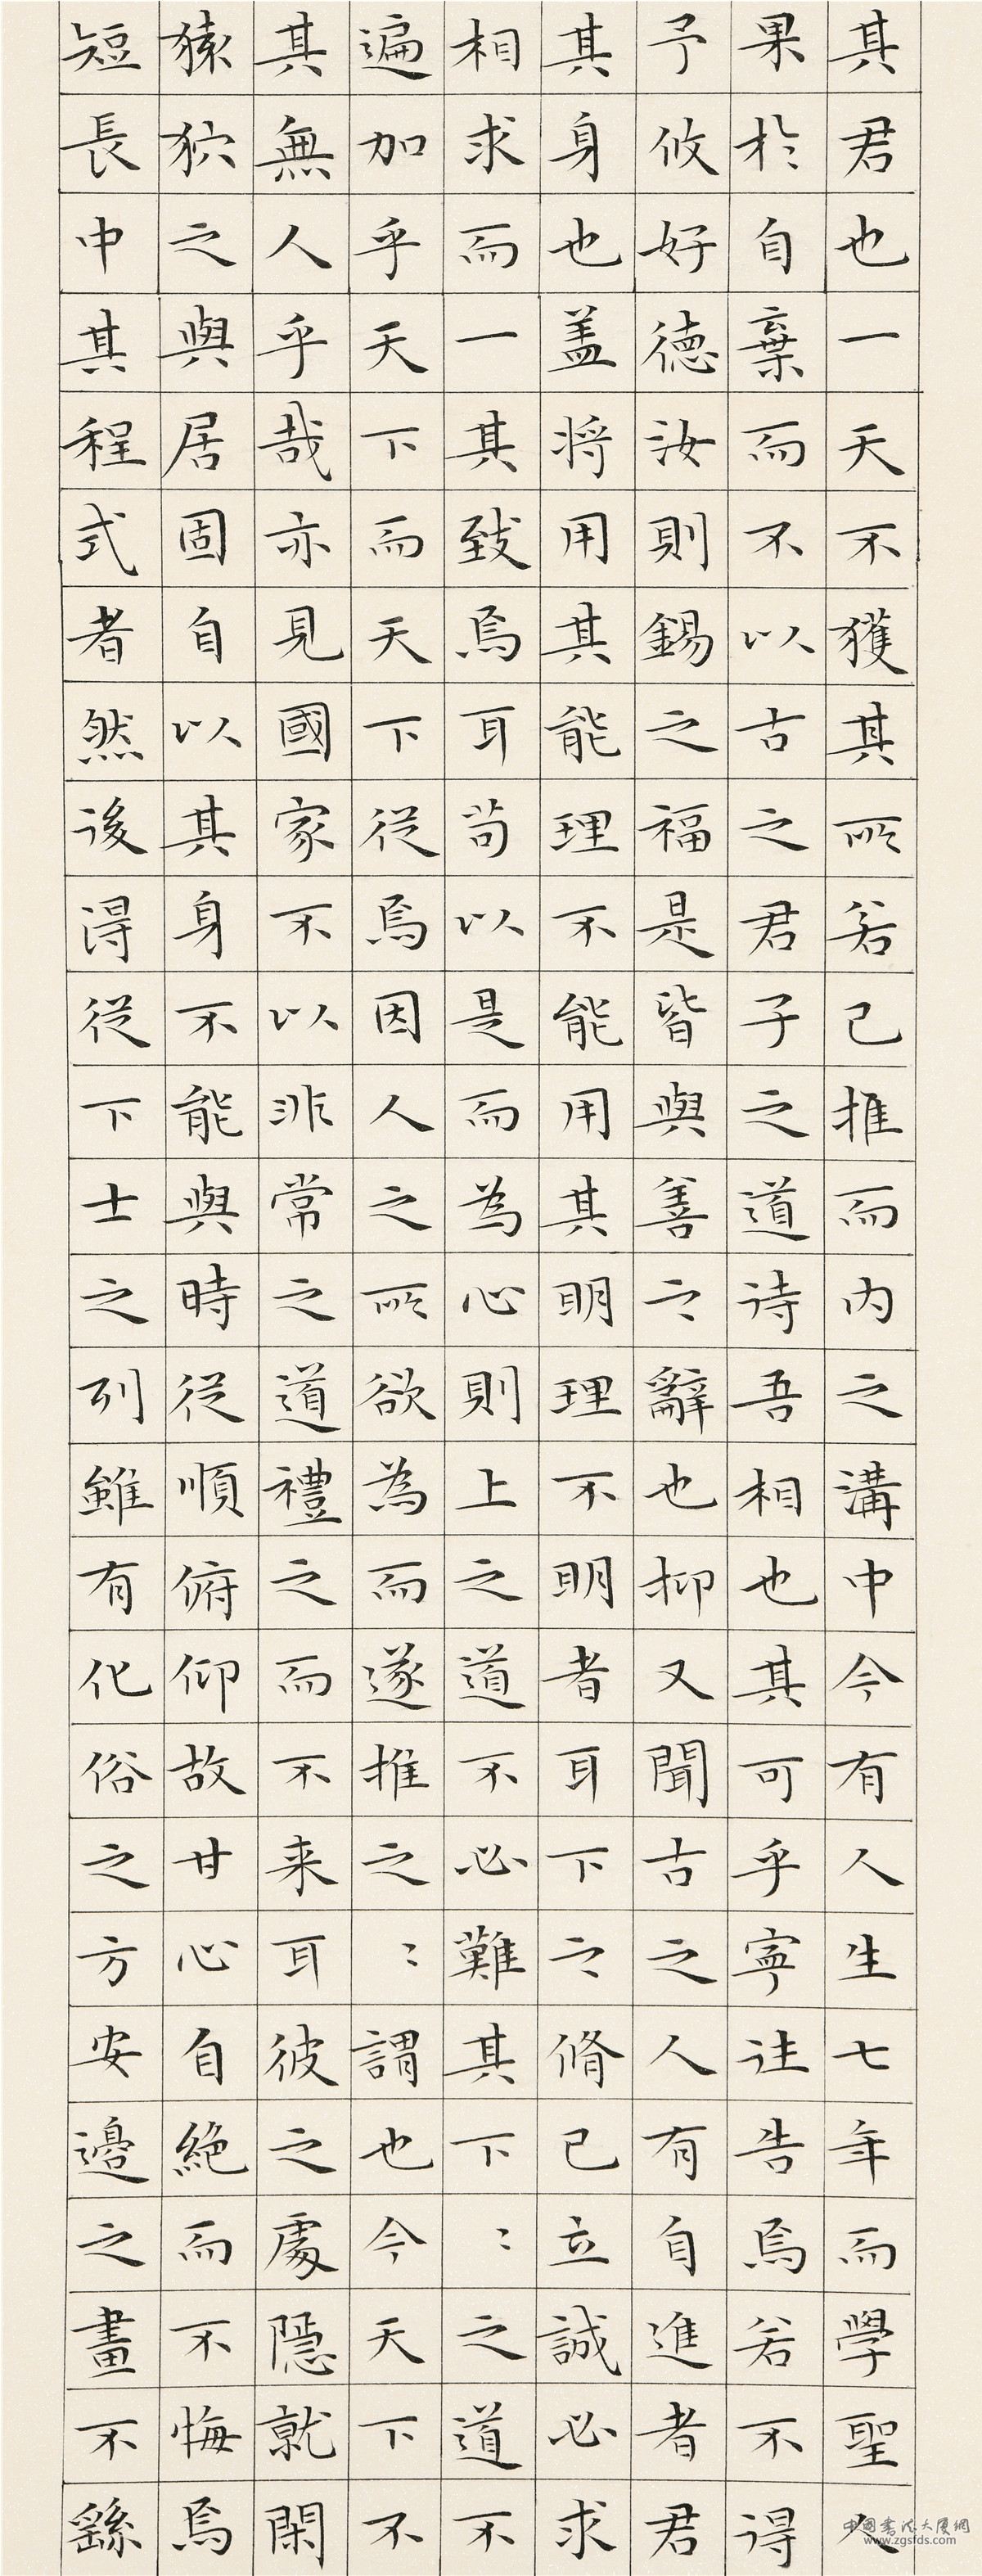 其君也一天不獲其所若己推而内之溝中今有人生七年而學聖人
果於自棄而不以古之君子之道待吾相也其可乎寧往告焉若不得
予攸好德汝則錫之福是皆與善之辭也抑又聞古之人有自進者君
其身也盖將用其能理不能用其明理不明者耳下之脩己立誠必求
相求而一其致焉耳苟以是而為心則上之道不必難其下〻之道不
遍加乎天下而天下從焉因人之所欲為而遂推之〻謂也今天下不
其無人乎哉亦見國家不以非常之道禮之而不来耳彼之處隱就閑
猿狖之與居固自以其身不能與時從順俯仰故甘心自絕而不悔焉
短長中其程式者然後得從下士之列雖有化俗之方安邊之畫不繇
中國書法大廈網
www.zgsfds.com